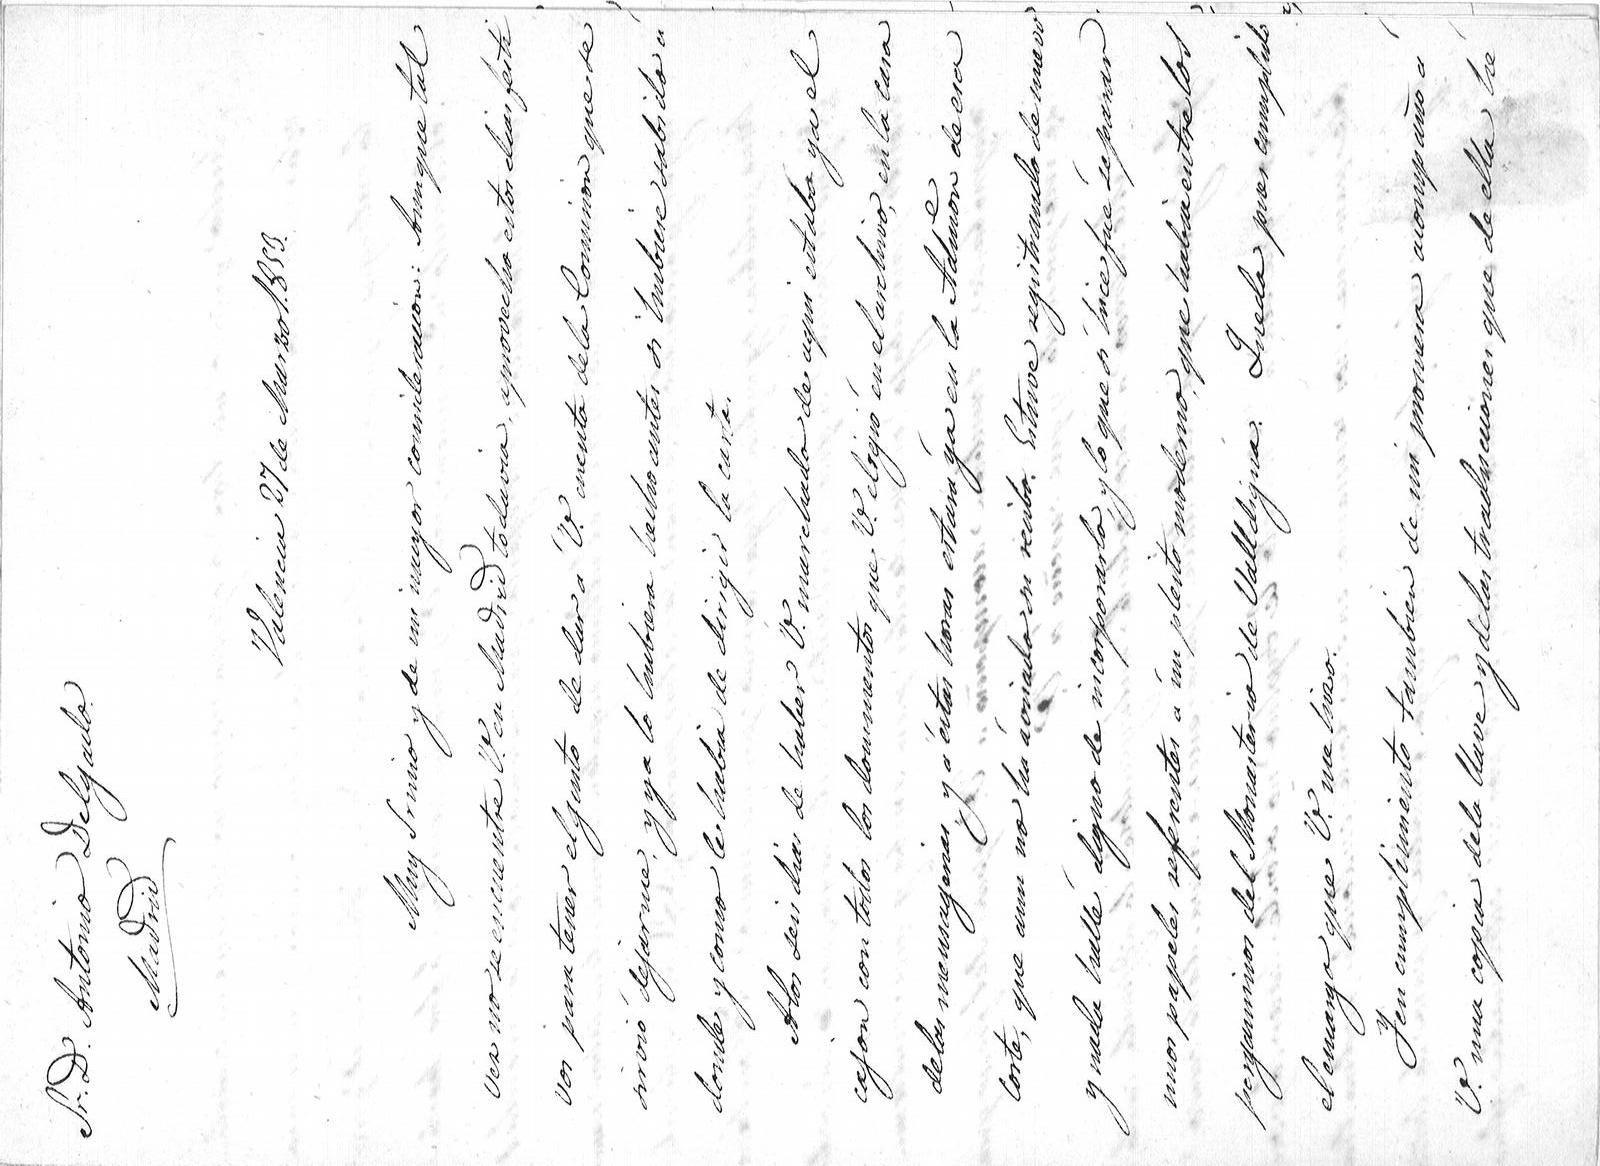 Sr. D. Antonio Delgado.
Madrid
Valencia 27 de Marzo 1.859.
Muy Sr mio y de mi mayor consideracion: Aunque tal
vez no se encuentre V. en Madrid todavia, aprovecho estos dias festi
vos para tener el gusto de dar a V. cuenta de la Comision que se
sirvió dejarme, y ya lo hubiera hecho antes si hubiese sabido á
donde y como le habia de dirigir la carta.
A los seis dias de haber V. marchado de aqui estaba ya el
cajon con todos los documentos que V. eligió en el archivo, en la casa
de los mensagerias y á éstas horas estará ya en la Admon de esa
Corte, que aun no ha avisado su recibo. Estuve registrando de nuevo
y nada hallé digno de incorporarlo y lo que si hice fué separar
unos papeles referentes á un pleito moderno, que habia entre los
pergaminos del Monasterio de Valldigna. Queda pues cumplido
el encargo que V. me hizo.
Y en cumplimiento tambien de mi promesa acompaño á
V. una copia de la llave y de las traducciones que de ella he